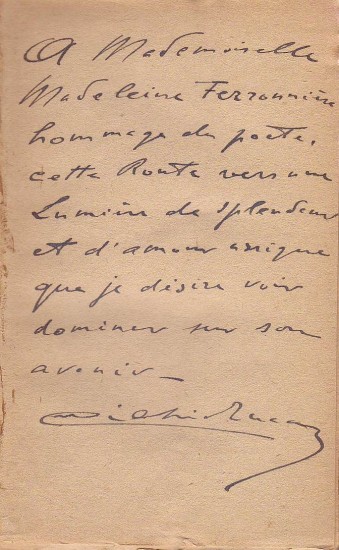 A Mademoiselle
Madeleine Ferronnière
hommage du poète,
cette Route vers une
Lumière de splendeur
et d'amour unique
que je désire voir
dominer sur son
avenir_